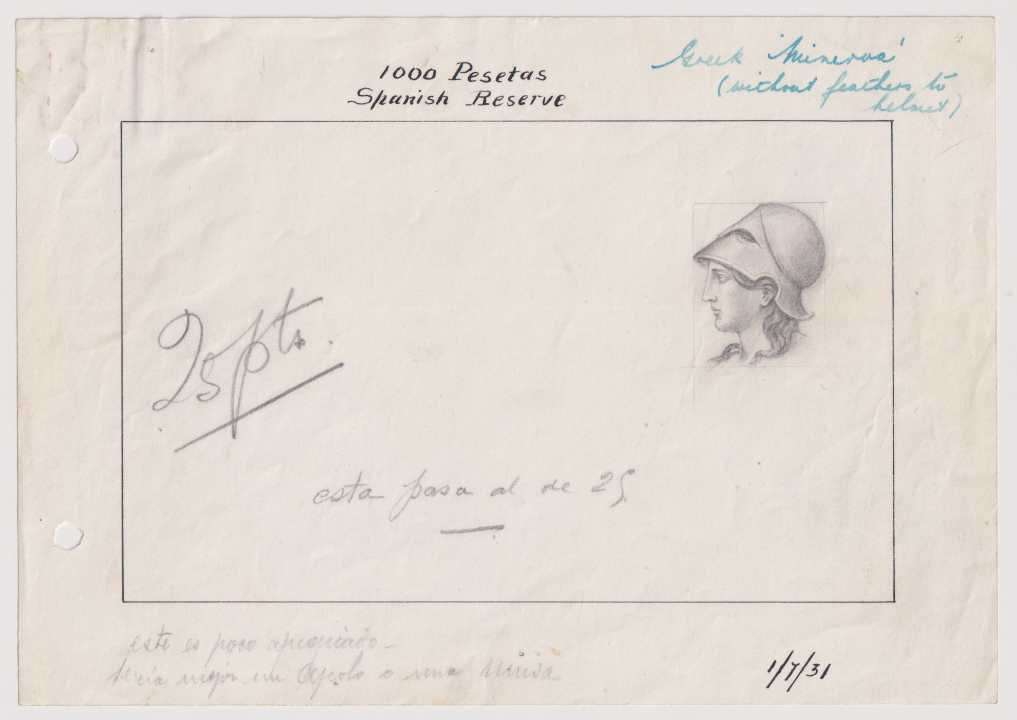 1000 Pesetas
Spanish Reserve
Greek 'Minerva'
(without feathers to
helmet)
25 pts.
esta pasa al de 25
este es poco apropiado -
sería mejor un Apolo o una
1/7/31